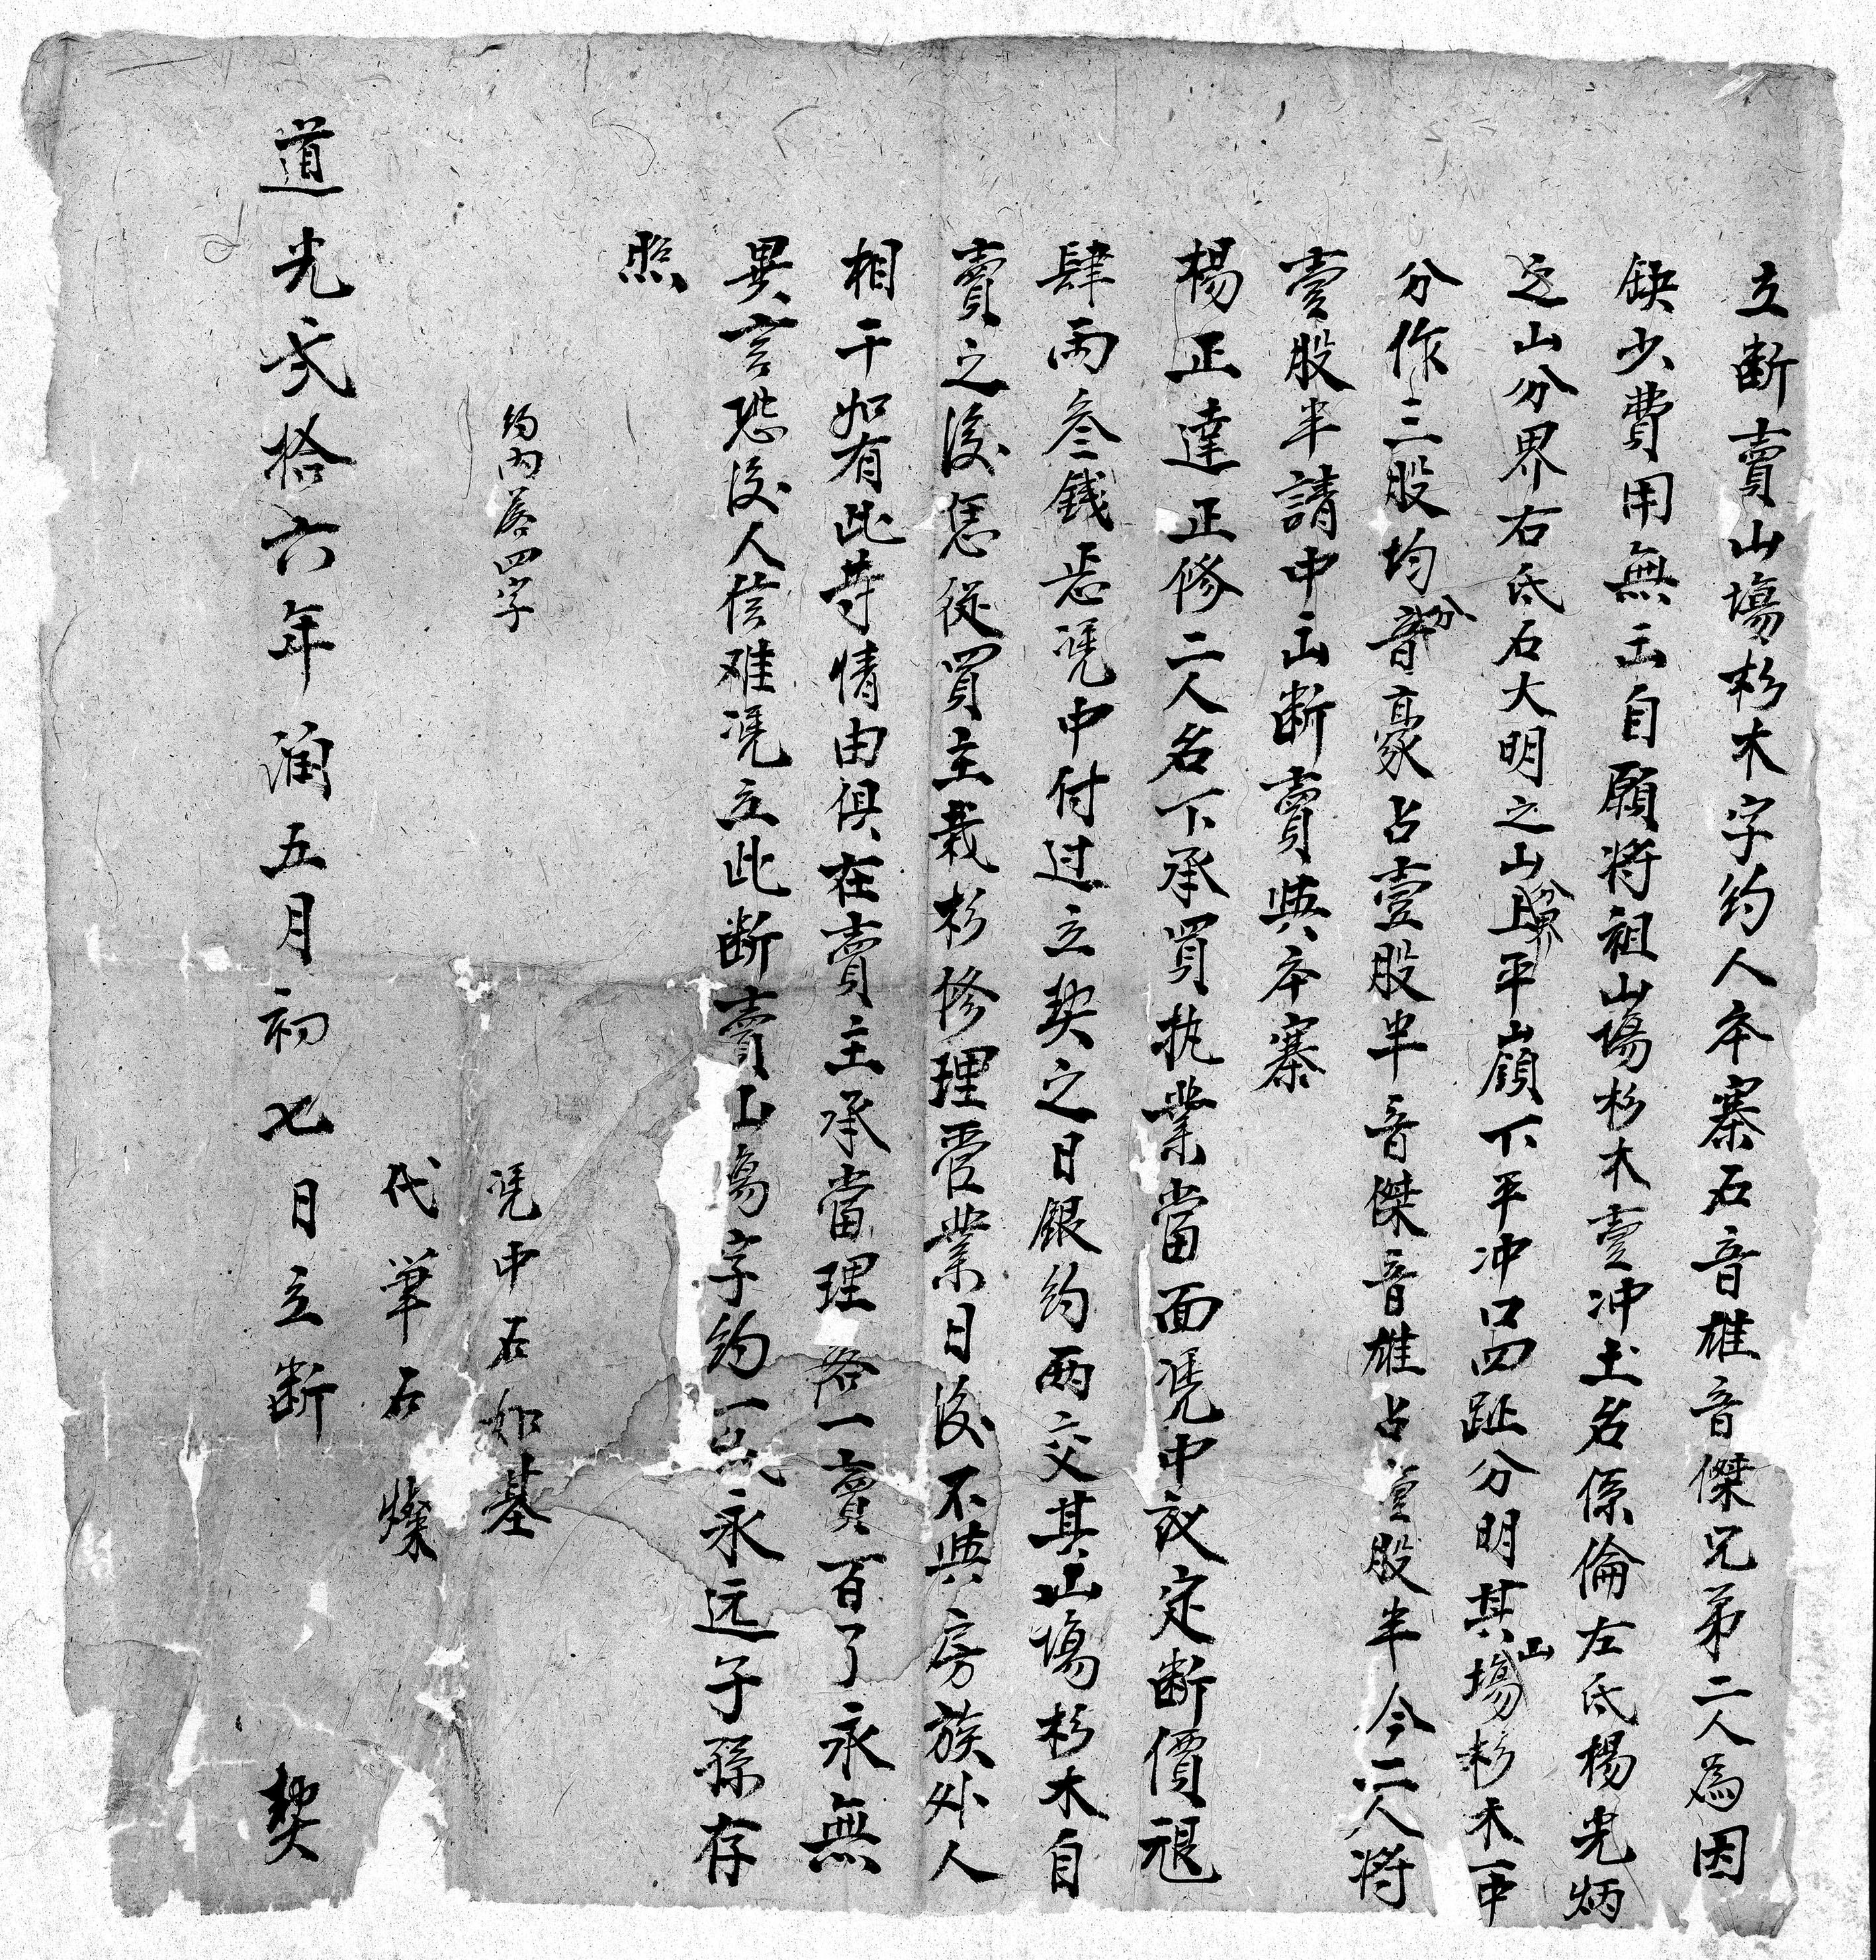 立断賣山塲杉木字約人本寨石音雄音傑兄弟二人為因
缺少費用無出自願将祖山塲杉木壹冲土名係倫左氐楊光炳
之山分界右氐石大明之山分界上平嶺下平冲口四趾分明其山塲杉木一中
分作三股均分音豪占壹股半音傑音雄占壹股半今二人将
壹股半請中出断賣與本寨
楊正達正修二人名下承買执業當面凭中议定断價銀
肆両叁錢悉凭中付过立契之日銀約両交其山塲杉木自
賣之後恁從買主栽杉修理管業日後不與房族外人
相干如有此等情由俱在賣主承當理 一賣百了永無
異言恐後人信难凭立此断賣山塲字約一帋永远子孫存
照
約内落四字
凭中石如基
代筆石 燦
道光贰拾六年潤五月初七日立断 契